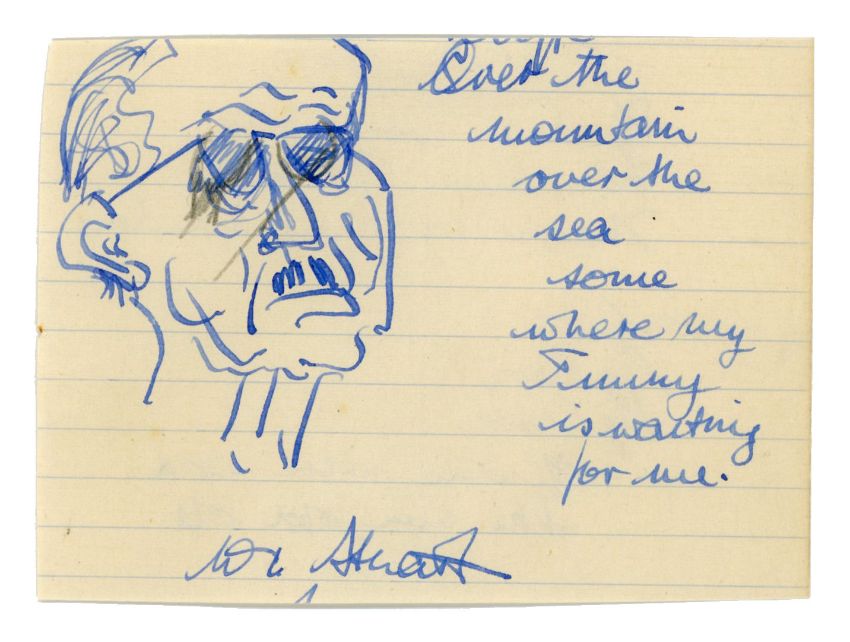 Over the
mountain
over the
sea
some
where my
is waiting
for me.